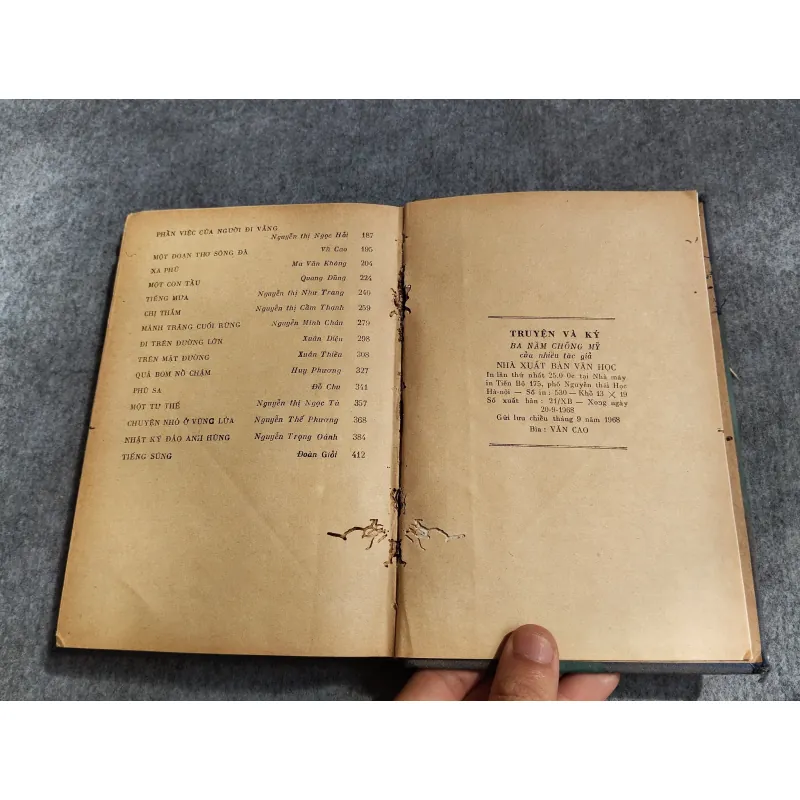 PHẦN VIỆC CỦA NGƯỜI ĐI VẮNG
Nguyễn thị Ngọc Hải 187
MỘT ĐOẠN THƠ SÔNG ĐÀ Vũ Cao 195
XA PHỦ Ma Văn Kháng 204
MỘT CON TÀU Quang Dũng 224
TIẾNG MƯA Nguyễn thị Như Trang 240
CHỊ THẮM Nguyễn thị Cẩm Thạnh 259
MẢNH TRĂNG CUỐI RỪNG Nguyễn Minh Châu 279
ĐI TRÊN ĐƯỜNG LỚN Xuân Diệu 298
TRÊN MẶT ĐƯỜNG Xuân Thiều 308
QUẢ BOM NỔ CHẬM Huy Phương 327
PHÙ SA Đỗ Chu 341
MỘT TƯ THẾ Nguyễn thị Ngọc Tú 357
CHUYỆN NHỎ Ở VÙNG LỬA Nguyễn Thế Phương 368
NHẬT KÝ ĐẢO ANH HÙNG Nguyễn Trọng Oánh 384
TIẾNG SÚNG Đoàn Giỏi 412
TRUYỆN VÀ KÝ
BA NĂM CHỐNG MỸ
của nhiều tác giả
NHÀ XUẤT BẢN VĂN HỌC
In lần thứ nhất 25.0 0c tại Nhà máy
in Tiến Bộ 175, phố Nguyễn thái Học
Hà-nội — Số in: 530 — Khổ 13 × 19
Số xuất bản: 21/XB — Xong ngày
20-9-1968
Gửi lưu chiểu tháng 9 năm 1968
Bìa: VĂN CAO